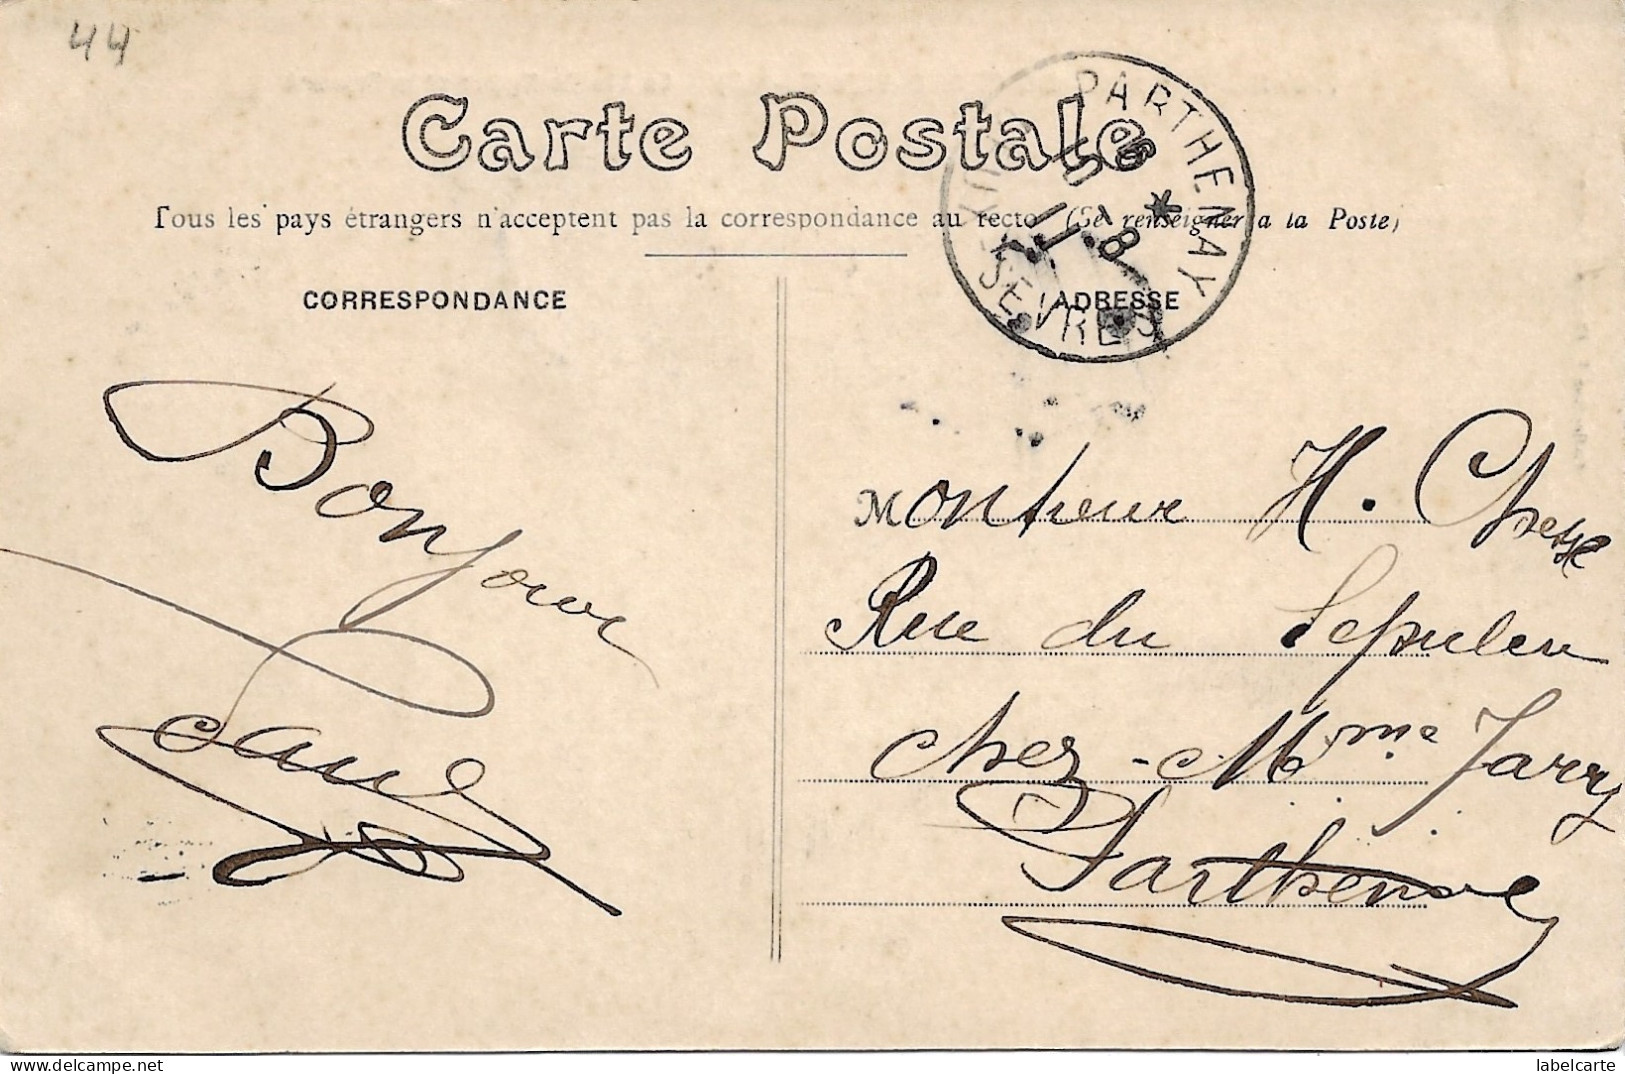 44
Carte Postale
Tous les pays étrangers n'acceptent pas la correspondance au recto (Se renseigner a la Poste)
PARTHENAY
SEVRES
CORRESPONDANCE
ADRESSE
Bonjour
Monsieur H.
Rue du Sepulcre
chez Mme Jarry
Parthenay
delcampe.net
labelcarte